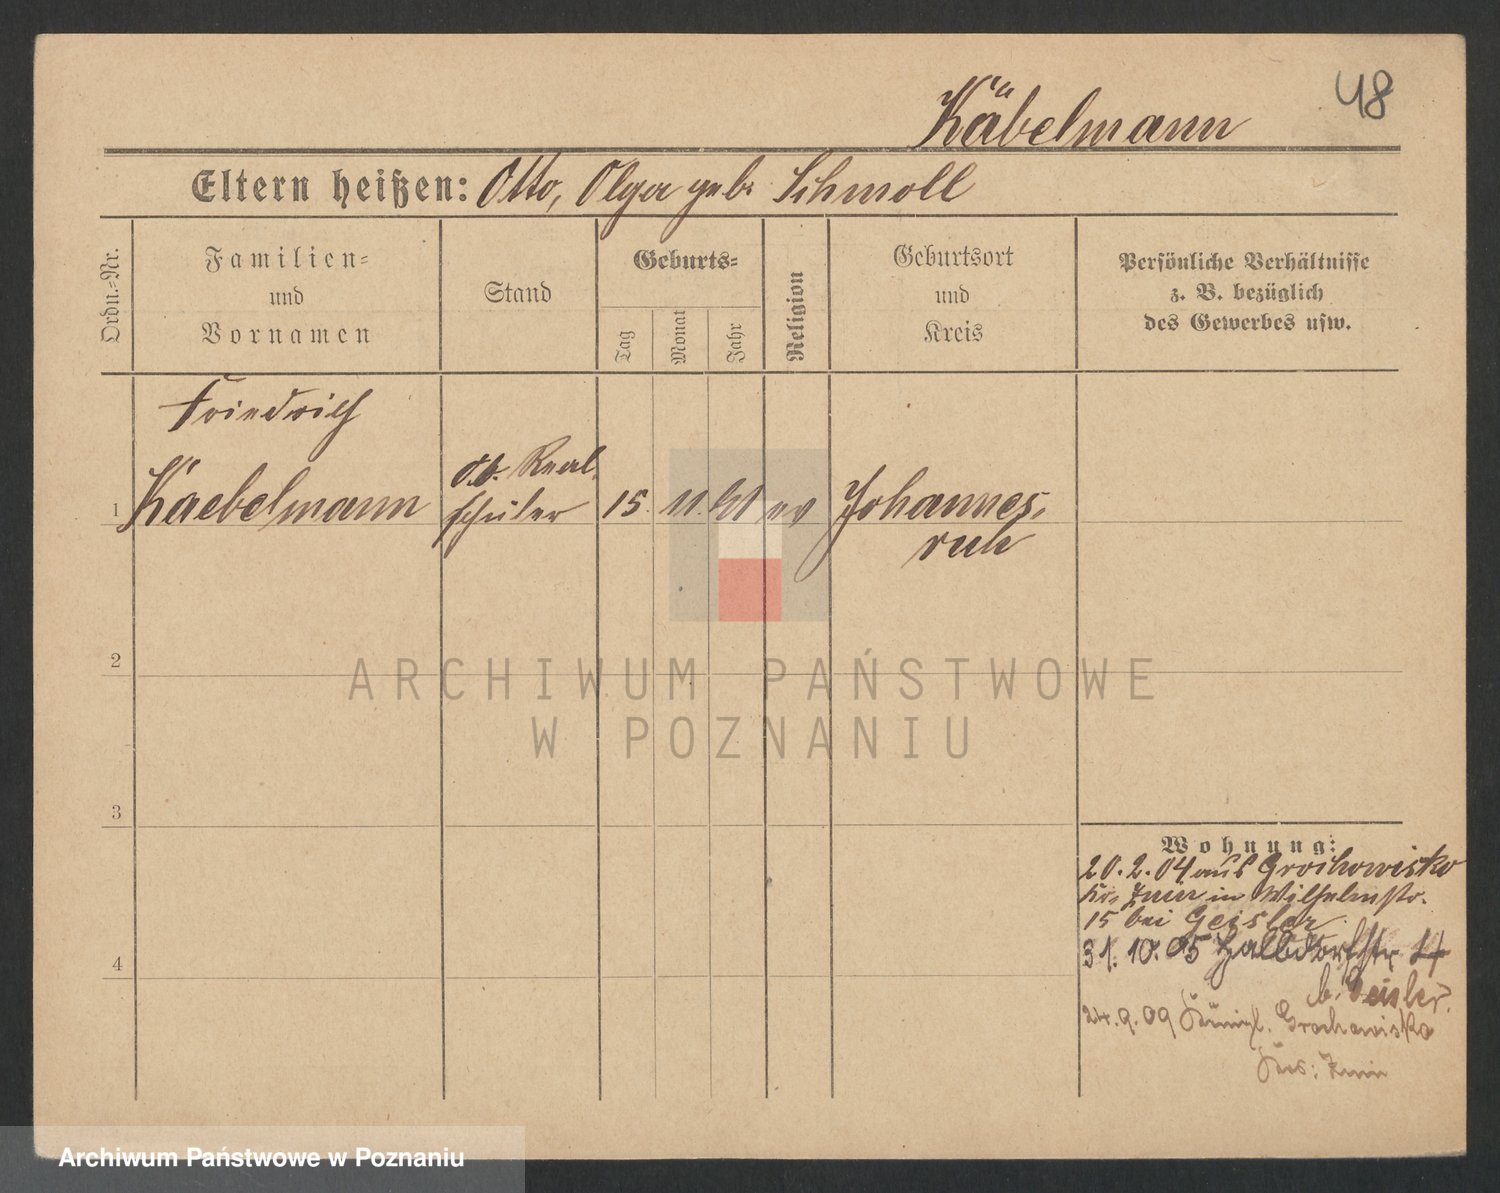 48
Käbelmann
Eltern heißen: Otto, Olga geb. Schmoll
Ordn.=Nr.
Familien=
und
Vornamen
Stand
Geburts=
Tag
Monat
Jahr
Religion
Geburtsort
und
Kreis
Persönliche Verhältnisse
z. B. bezüglich
des Gewerbes usw.
Friedrich
1
Kaebelmann
Real
schüler
15. 11. 91 ev
Johannes-
ruh
2
ARCHIWUM PAŃSTWOWE
W POZNANIU
3
4
Wohnung:
20.2.04 aus Grochowisko
Kr. Znin in Wilhelmstr.
15 bei Geisler
31.10.05 Halbdorfstr. 14
b. Geisler.
24.9.09 Königl. Grochowisko
Krs: Znin
Archiwum Państwowe w Poznaniu